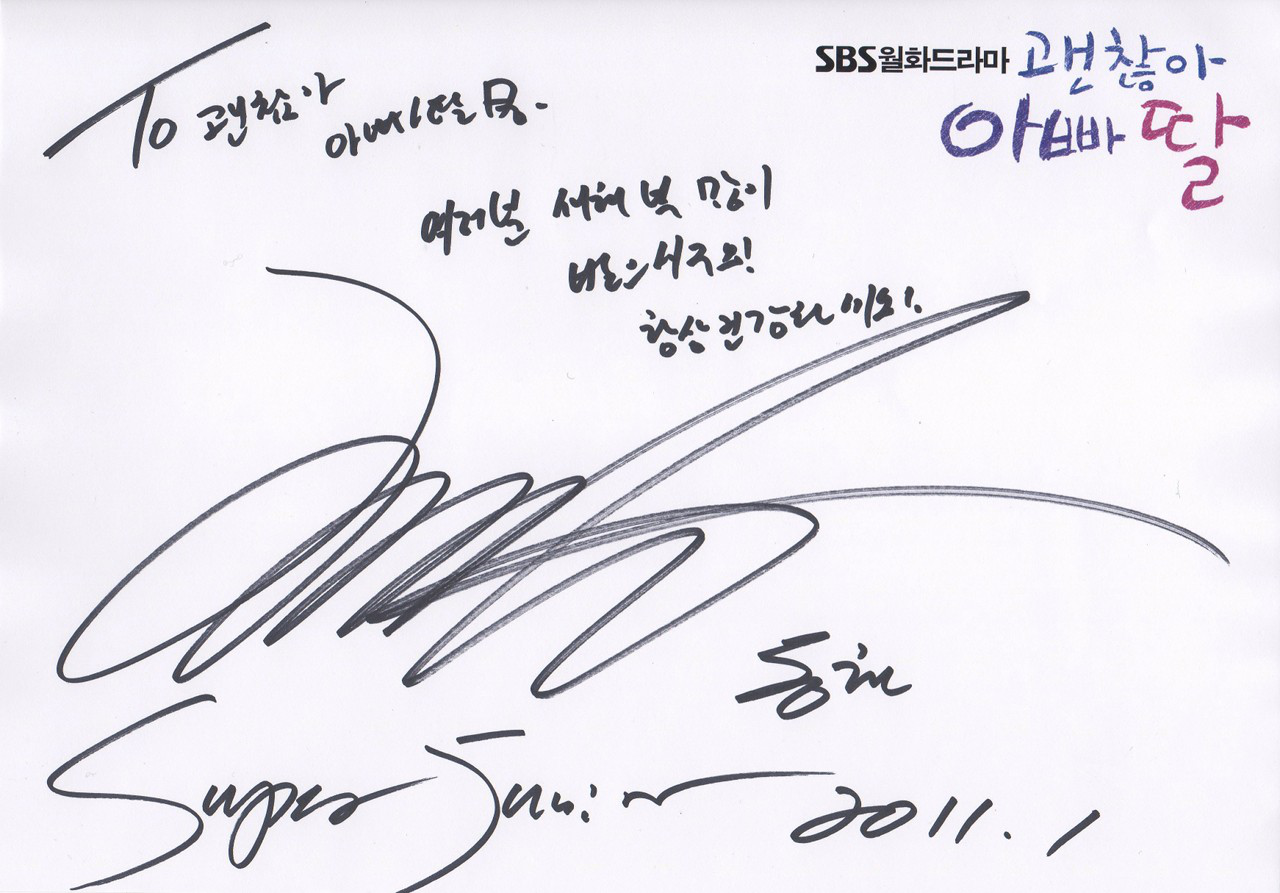 SBS월화드라마 괜찮아
아빠 딸
To 괜찮아
아빠딸 팀.
여러분 새해 복 많이
받으시구요!
항상 건강하세요!
동해
Super Junior
2011. 1